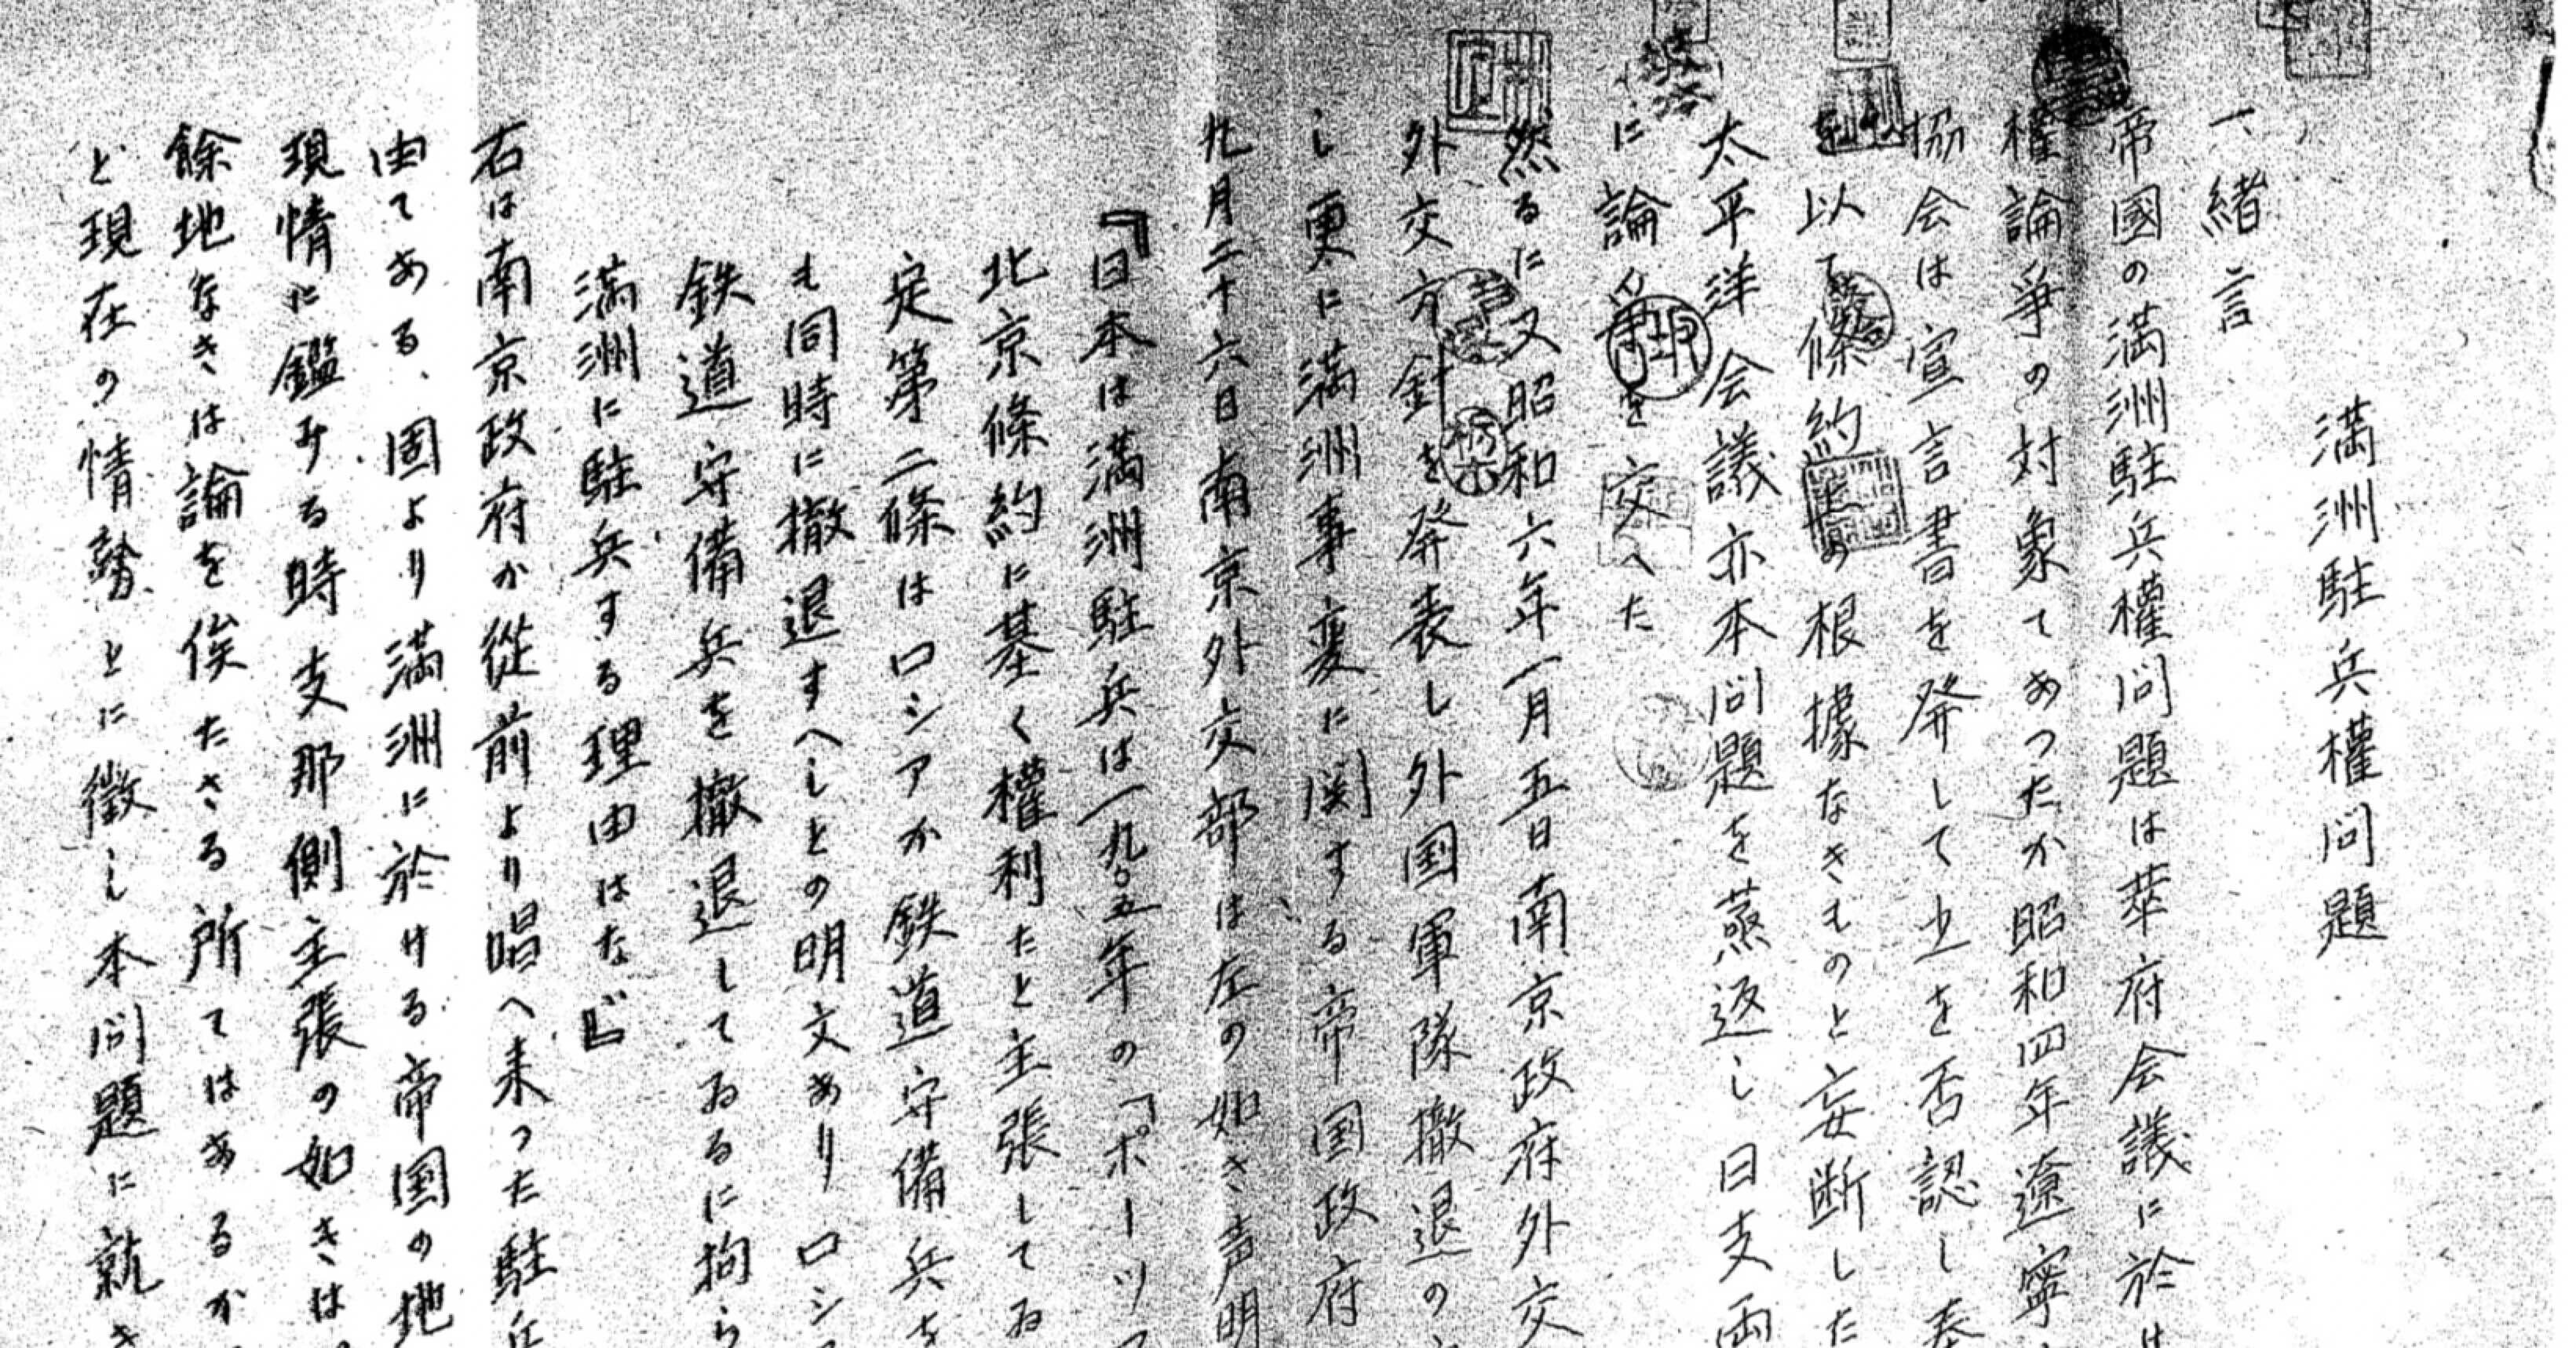 満洲駐兵權问題
一、緒言
帝國の満洲駐兵權问題は華府会議に於け
權論爭の対象てあつたか昭和四年遼寧
協会は宣言書を発して之を否認し奉
を以て條約上の根據なきものと妄断した
太平洋会議亦本问題を蒸返し日支両
に論爭を交へた
然るに又昭和六年一月五日南京政府外交
外交方針を発表し外国軍隊撤退の
し更に満洲事変に関する帝国政府
九月二十六日南京外交部は左の如き声明
『日本は満洲駐兵は一九〇五年の「ポーツマ
北京條約に基く權利たと主張してゐ
定第二條はロシアか鉄道守備兵を
も同時に撤退すへしとの明文ありロシア
鉄道守備兵を撤退してゐるに拘ら
満洲に駐兵する理由はな』
右は南京政府か從前より唱へ来つた駐兵
由てある、固より満洲に於ける帝国の地
現情に鑑みる時支那側主張の如きは
餘地なきは論を俟たさる所てはあるか
と現在の情勢とに徴し本问題に就き